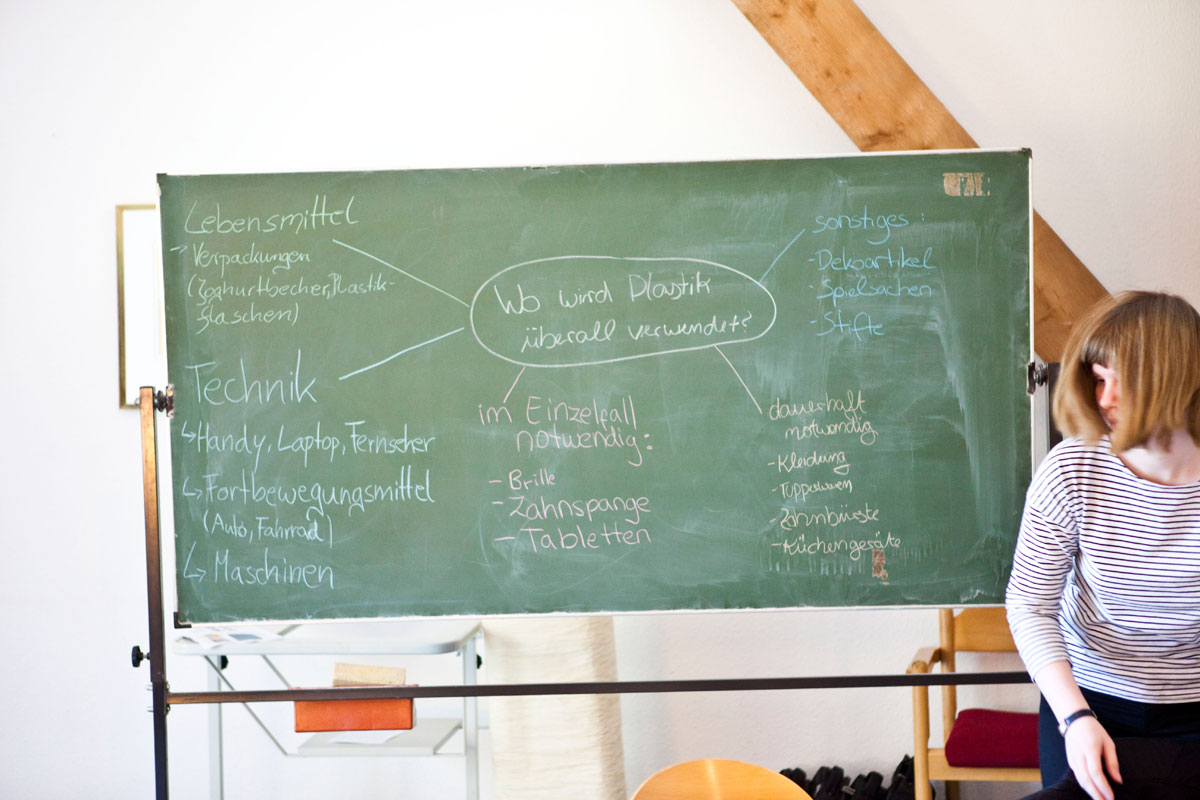 Lebensmittel
→ Verpackungen
(Joghurtbecher, Plastik-
flaschen)
Technik
↳ Handy, Laptop, Fernseher
↳ Fortbewegungsmittel
(Auto, Fahrrad)
↳ Maschinen
Wo wird Plastik
überall verwendet?
im Einzelfall
notwendig:
- Brille
- Zahnspange
- Tabletten
sonstiges:
- Dekoartikel
- Spielsachen
- Stifte
dauerhaft
notwendig
- Kleidung
- Tupperwaren
- Zahnbürste
- Küchengeräte